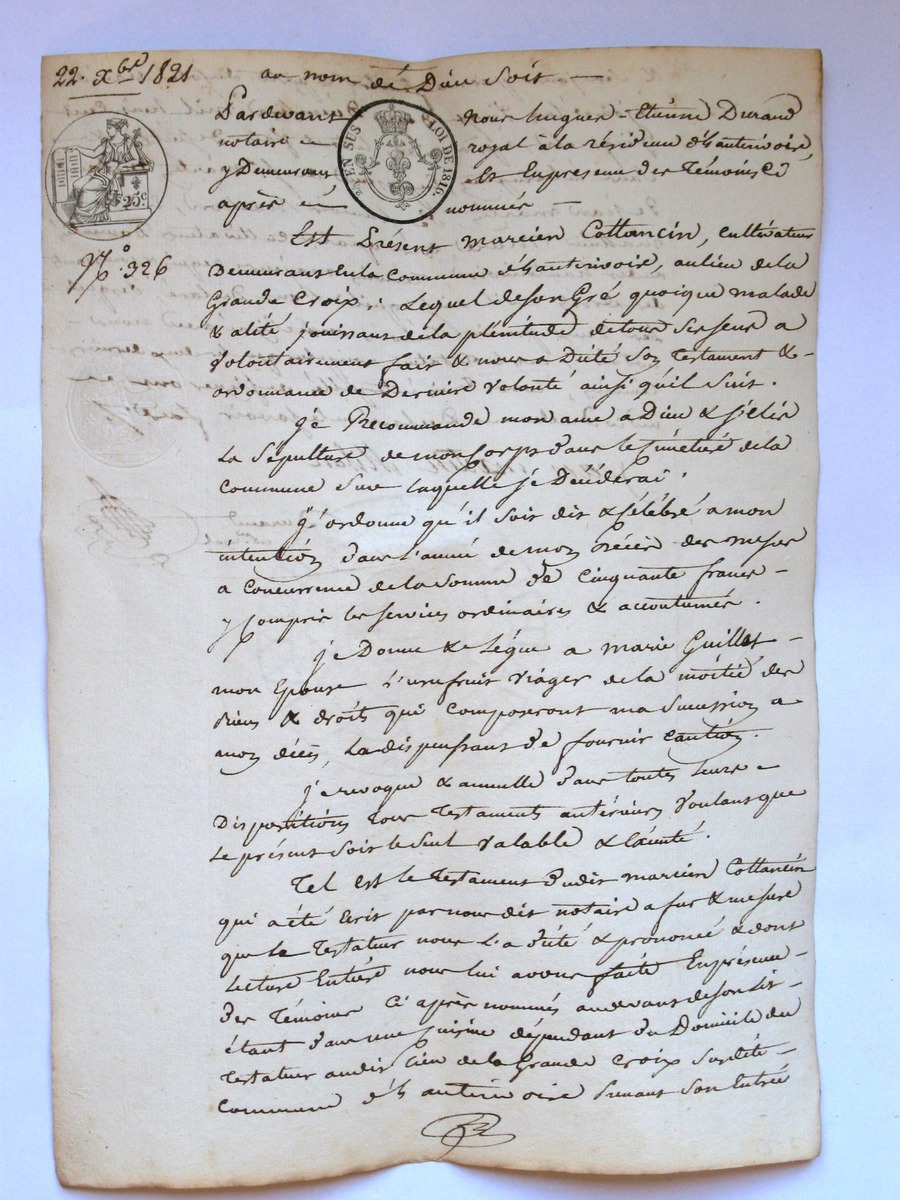 22. Xbre 1821 au nom de Dieu soit —
Pardevant Nous hugues-Etienne Durand
notaire — royal à la résidence d'hauterivoire
y Demeurant Et En presence des Témoins Ci
après — nommés —
25c.
EN SUS
LOI DE 1816.
No. 326
Est Présent marcien Cottancin, cultivateur
Demeurant En la Commune d'hauterivoire, au lieu de la
Grande Croix; Lequel de son Gré quoique malade
& alité jouissant de la plénitude de tous ses sens a
volontairement fait & nous a dicté son testament &
ordonnance de Derniere volonté ainsi qu'il suit.
je Recommande mon ame à Dieu & j'élis
La Sépulture de mon Corps dans le Cimetiere de la
Commune sur laquelle je Décéderai.
j'ordonne qu'il soit dit & célébré a mon
intention dans l'année de mon décès des messes
a Concurrence de la Somme de Cinquante francs —
y Compris les services ordinaires & accoutumés.
je Donne & Légue a marie Guillot —
mon Epouse l'usufruit viager de la moitié des
Biens & droits qui Composeront ma Succession a
mon décès, La dispensant de fournir Caution.
je revoque & annulle dans toutes leurs —
Dispositions tous testaments antérieurs voulant que
le présent soit le seul valable & Exécuté.
Tel est le testament dudit marcien Cottancin
qui a été Ecrit par nous dit notaire a fur & mesure
que le Testateur nous l'a dicté & prononcé & dont
Lecture Entiere nous lui avons faite En présence —
des Témoins Ci après nommés au devant de son Lit —
étant dans une Cuisine dépendant du Domicile du
Testateur audit lieu de la Grande Croix susdite —
Commune d'hauterivoire Prenant son Entrée